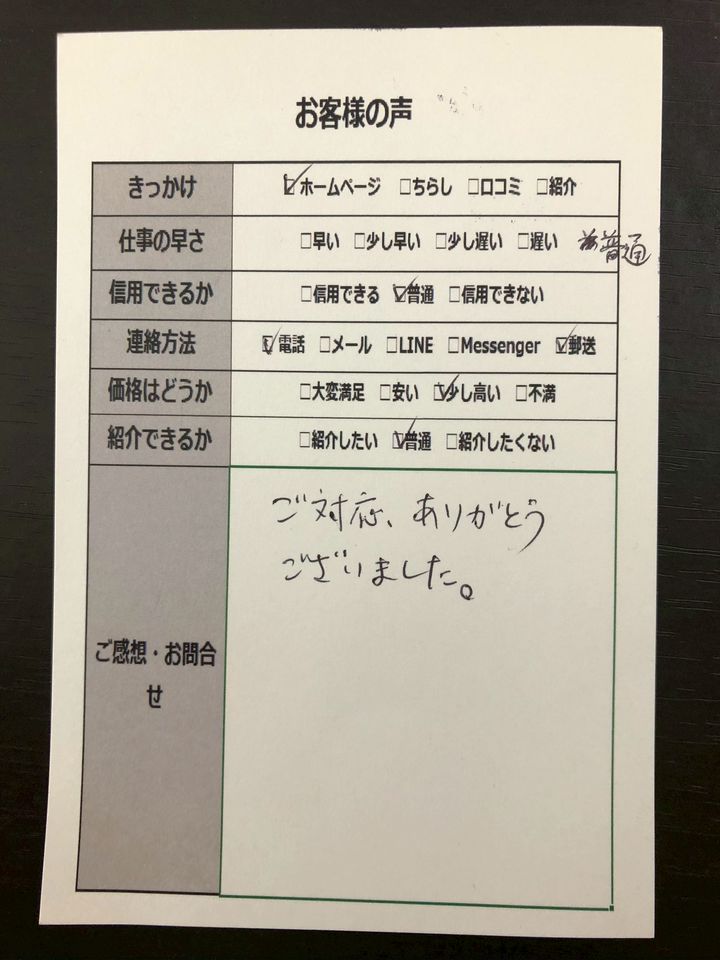 お客様の声
きっかけ ☑ホームページ □ちらし □口コミ □紹介
仕事の早さ □早い □少し早い □少し遅い □遅い 普通
信用できるか □信用できる ☑普通 □信用できない
連絡方法 ☑電話 □メール □LINE □Messenger ☑郵送
価格はどうか □大変満足 □安い ☑少し高い □不満
紹介できるか □紹介したい ☑普通 □紹介したくない
ご感想・お問合
せ
ご対応、ありがとう
ございました。